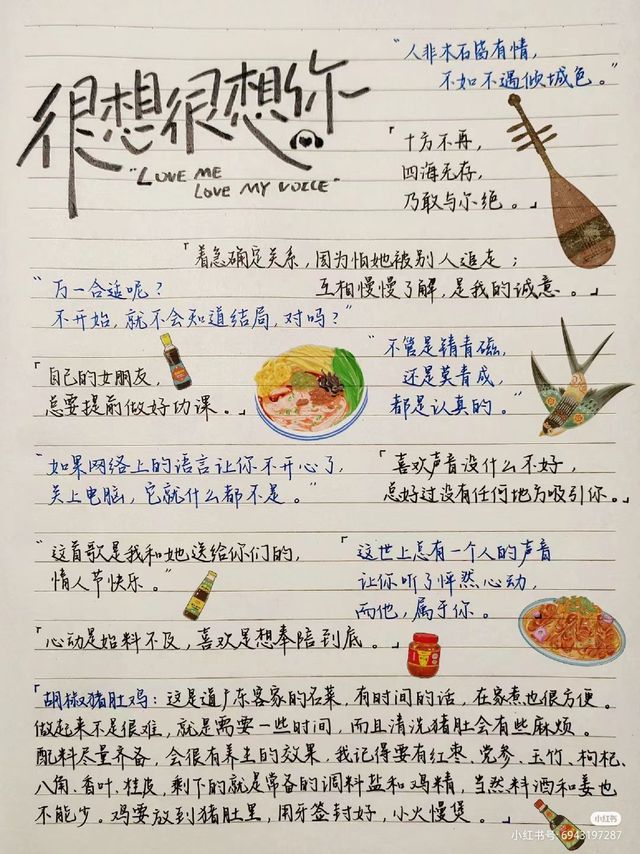 很想很想你
"LOVE ME
LOVE MY VOICE"
"人非木石皆有情,
不如不遇倾城色。"
「十方不再,
四海无存,
乃敢与尔绝。」
「着急确定关系,因为怕她被别人追走;
互相慢慢了解,是我的诚意。」
"万一合适呢?
不开始,就不会知道结局,对吗?"
「自己的女朋友,
总要提前做好功课。」
"不管是锖青磁,
还是莫青成,
都是认真的。"
"如果网络上的语言让你不开心了,
关上电脑,它就什么都不是。"
「喜欢声音没什么不好,
总好过没有任何地方吸引你。」
"这首歌是我和她送给你们的,
情人节快乐。"
「这世上总有一个人的声音
让你听了怦然心动,
而他,属于你。
「心动是始料不及,喜欢是想奉陪到底。」
「胡椒猪肚鸡:这是道广东客家的名菜,有时间的话,在家煮也很方便。
做起来不是很难,就是需要一些时间,而且清洗猪肚会有些麻烦。
配料尽量齐备,会很有养生的效果,我记得要有红枣、党参、玉竹、枸杞、
八角、香叶、桂皮,剩下的就是常备的调料盐和鸡精,当然料酒和姜也
不能少。鸡要放到猪肚里,用牙签封好,小火慢煲。」
小红书
小红书号: 6943197287